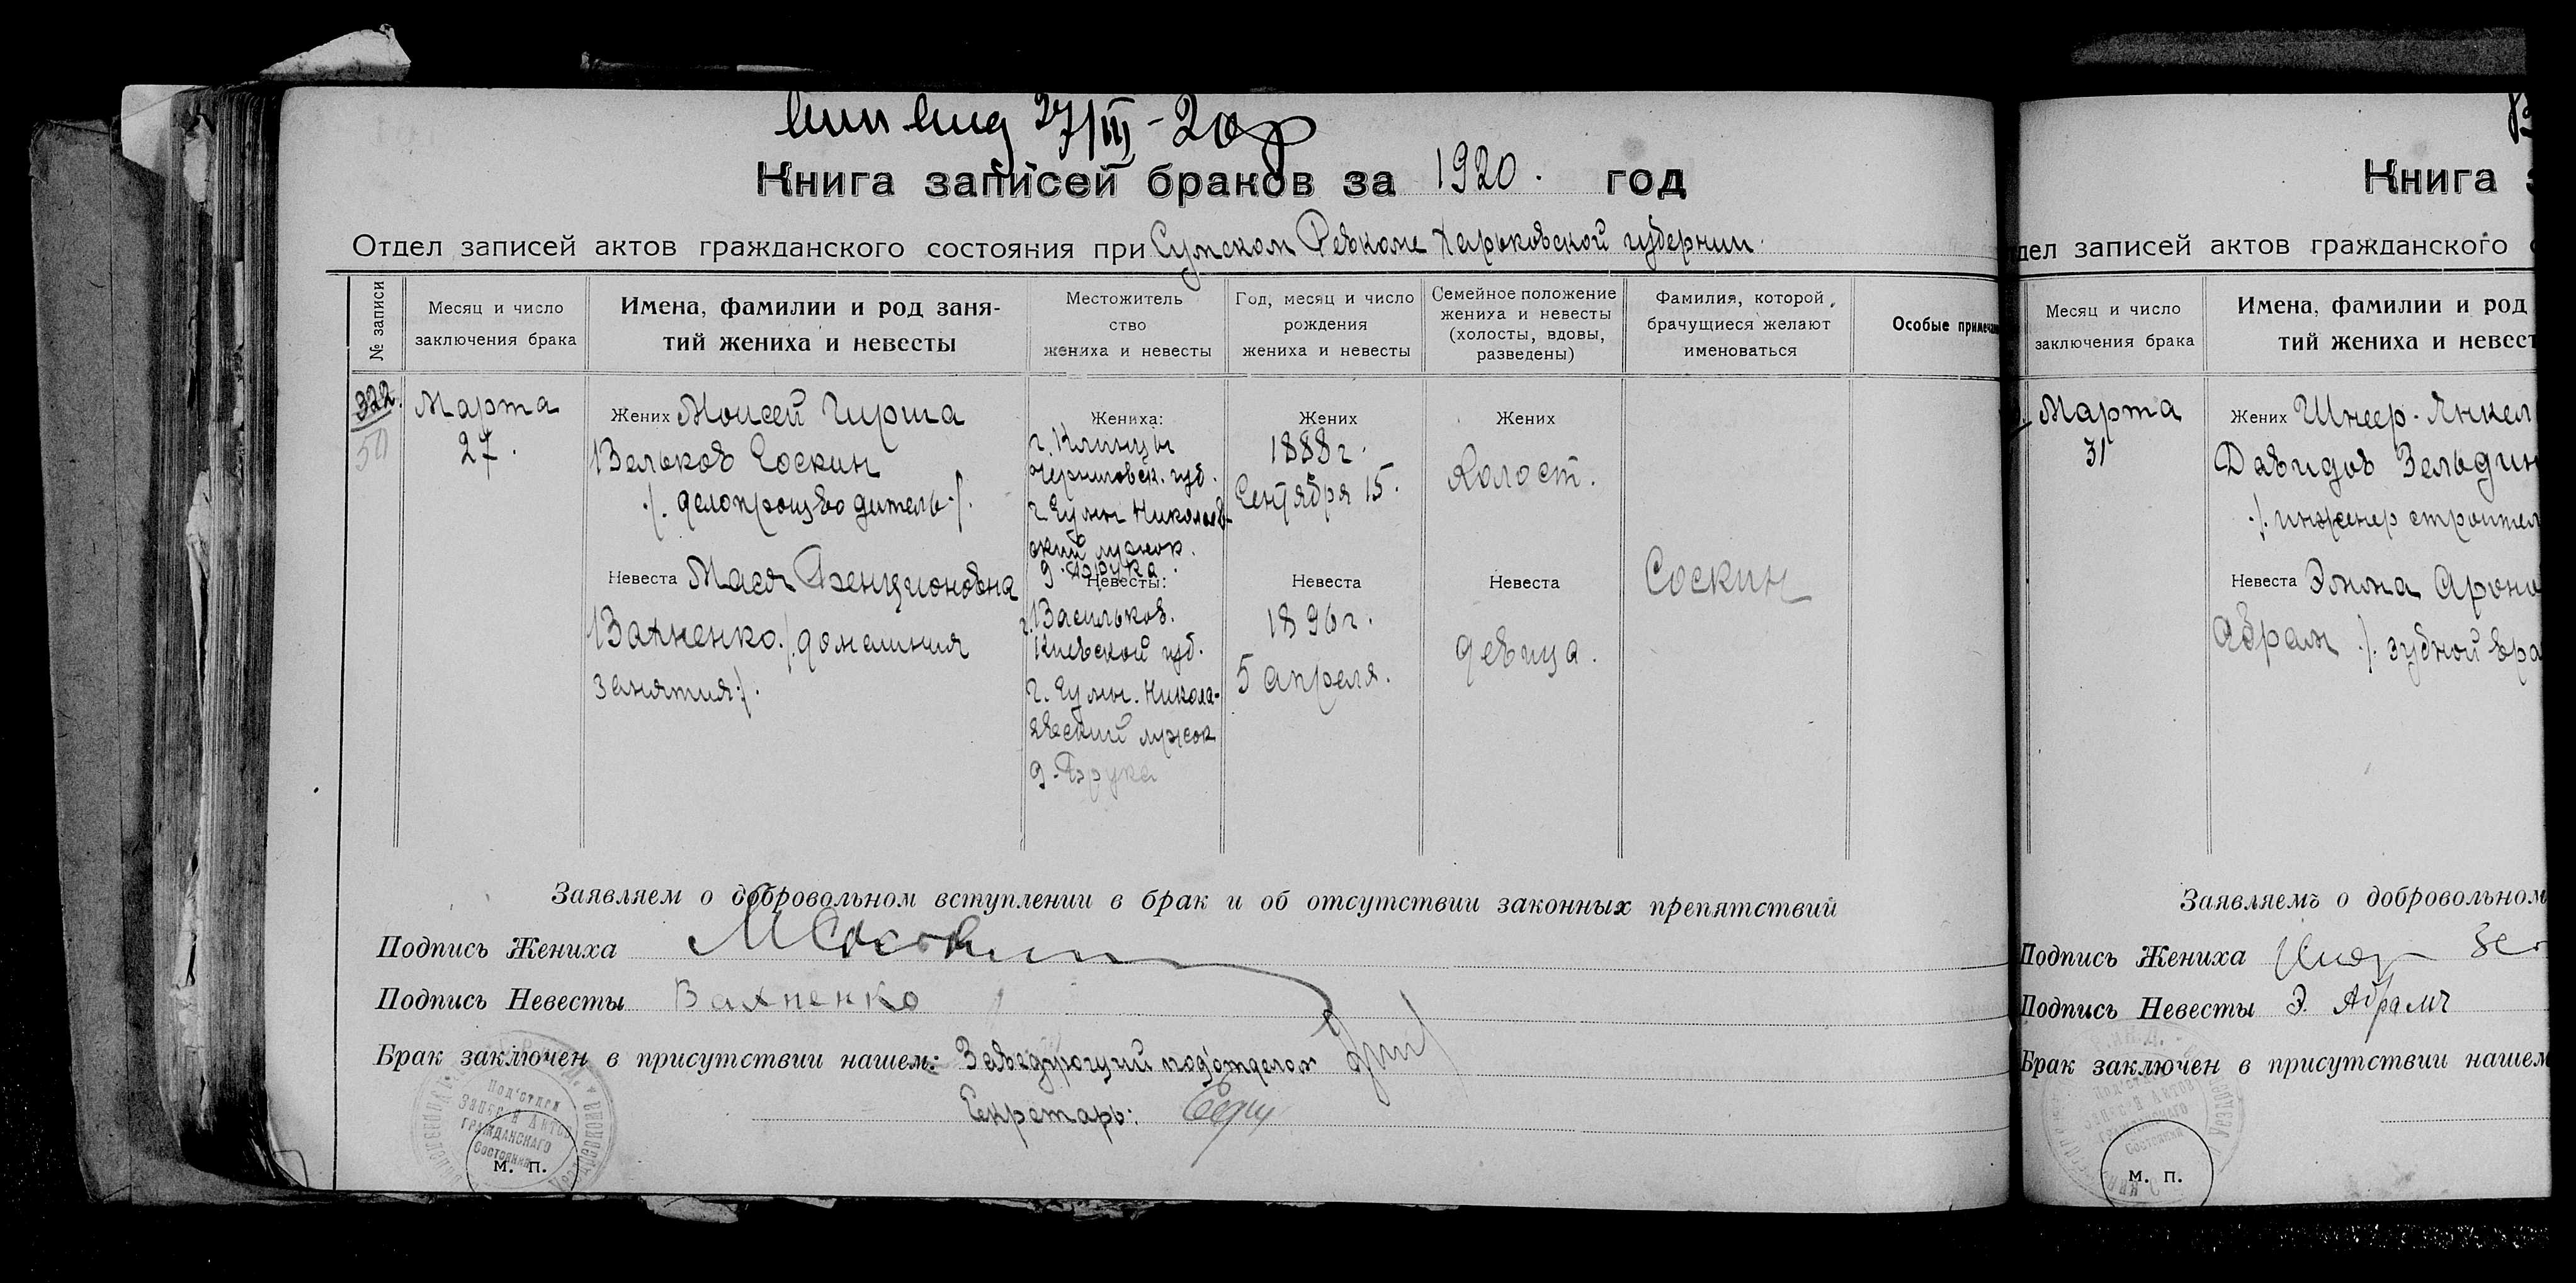 27/III-20
Книга записей браков за 1920. год
Отдел записей актов гражданского состояния при Сумском Ревкоме Харьковской губернии.
№ записи
Месяц и число
заключения брака
Имена, фамилии и род заня-
тий жениха и невесты
Местожитель
ство
жениха и невесты
Год, месяц и число
рождения
жениха и невесты
Семейное положение
жениха и невесты
(холосты, вдовы,
разведены)
Фамилия, которой
брачущиеся желают
именоваться
Особые примеча
322.
50
Марта
27.
Жених Моисей Гирша
Вельков Соскин
/. делопроизводитель ./.
Невеста Мася Бенционовна
Вахненко. /. домашния
занятия ./.
Жениха:
г. Клинцы
Черниговск. губ.
г. Сумы Николаев-
ский лужок.
д. Брука.
Невесты:
г. Васильков.
Киевской губ.
г. Сумы. Никола-
евский лужок
д. Брука
Жених
1888 г.
Сентября 15.
Невеста
1896 г.
5 апреля.
Жених
Холост.
Невеста
девица.
Соскин
Заявляем о добровольном вступлении в брак и об отсутствии законных препятствий
Подпись Жениха МСоскин
Подпись Невесты Вахненко
Брак заключен в присутствии нашем: Заведующий под'отделом
Секретарь:
Под'отдел
Записи Актов
ГРАЖДАНСКАГО
Состояния
м. п.
Книга з
дел записей актов гражданского с
Месяц и число
заключения брака
Имена, фамилии и род
тий жениха и невест
Марта
31
Жених Шнеер-Янкел
Давидов Зельдин
./. инженер строител
Невеста Эмма Ароно
Абрам ./. зубной вра
Заявляемъ о добровольном
Подпись Жениха
Подпись Невесты Э. Абрамч
Брак заключен в присутствии нашем
м. п.